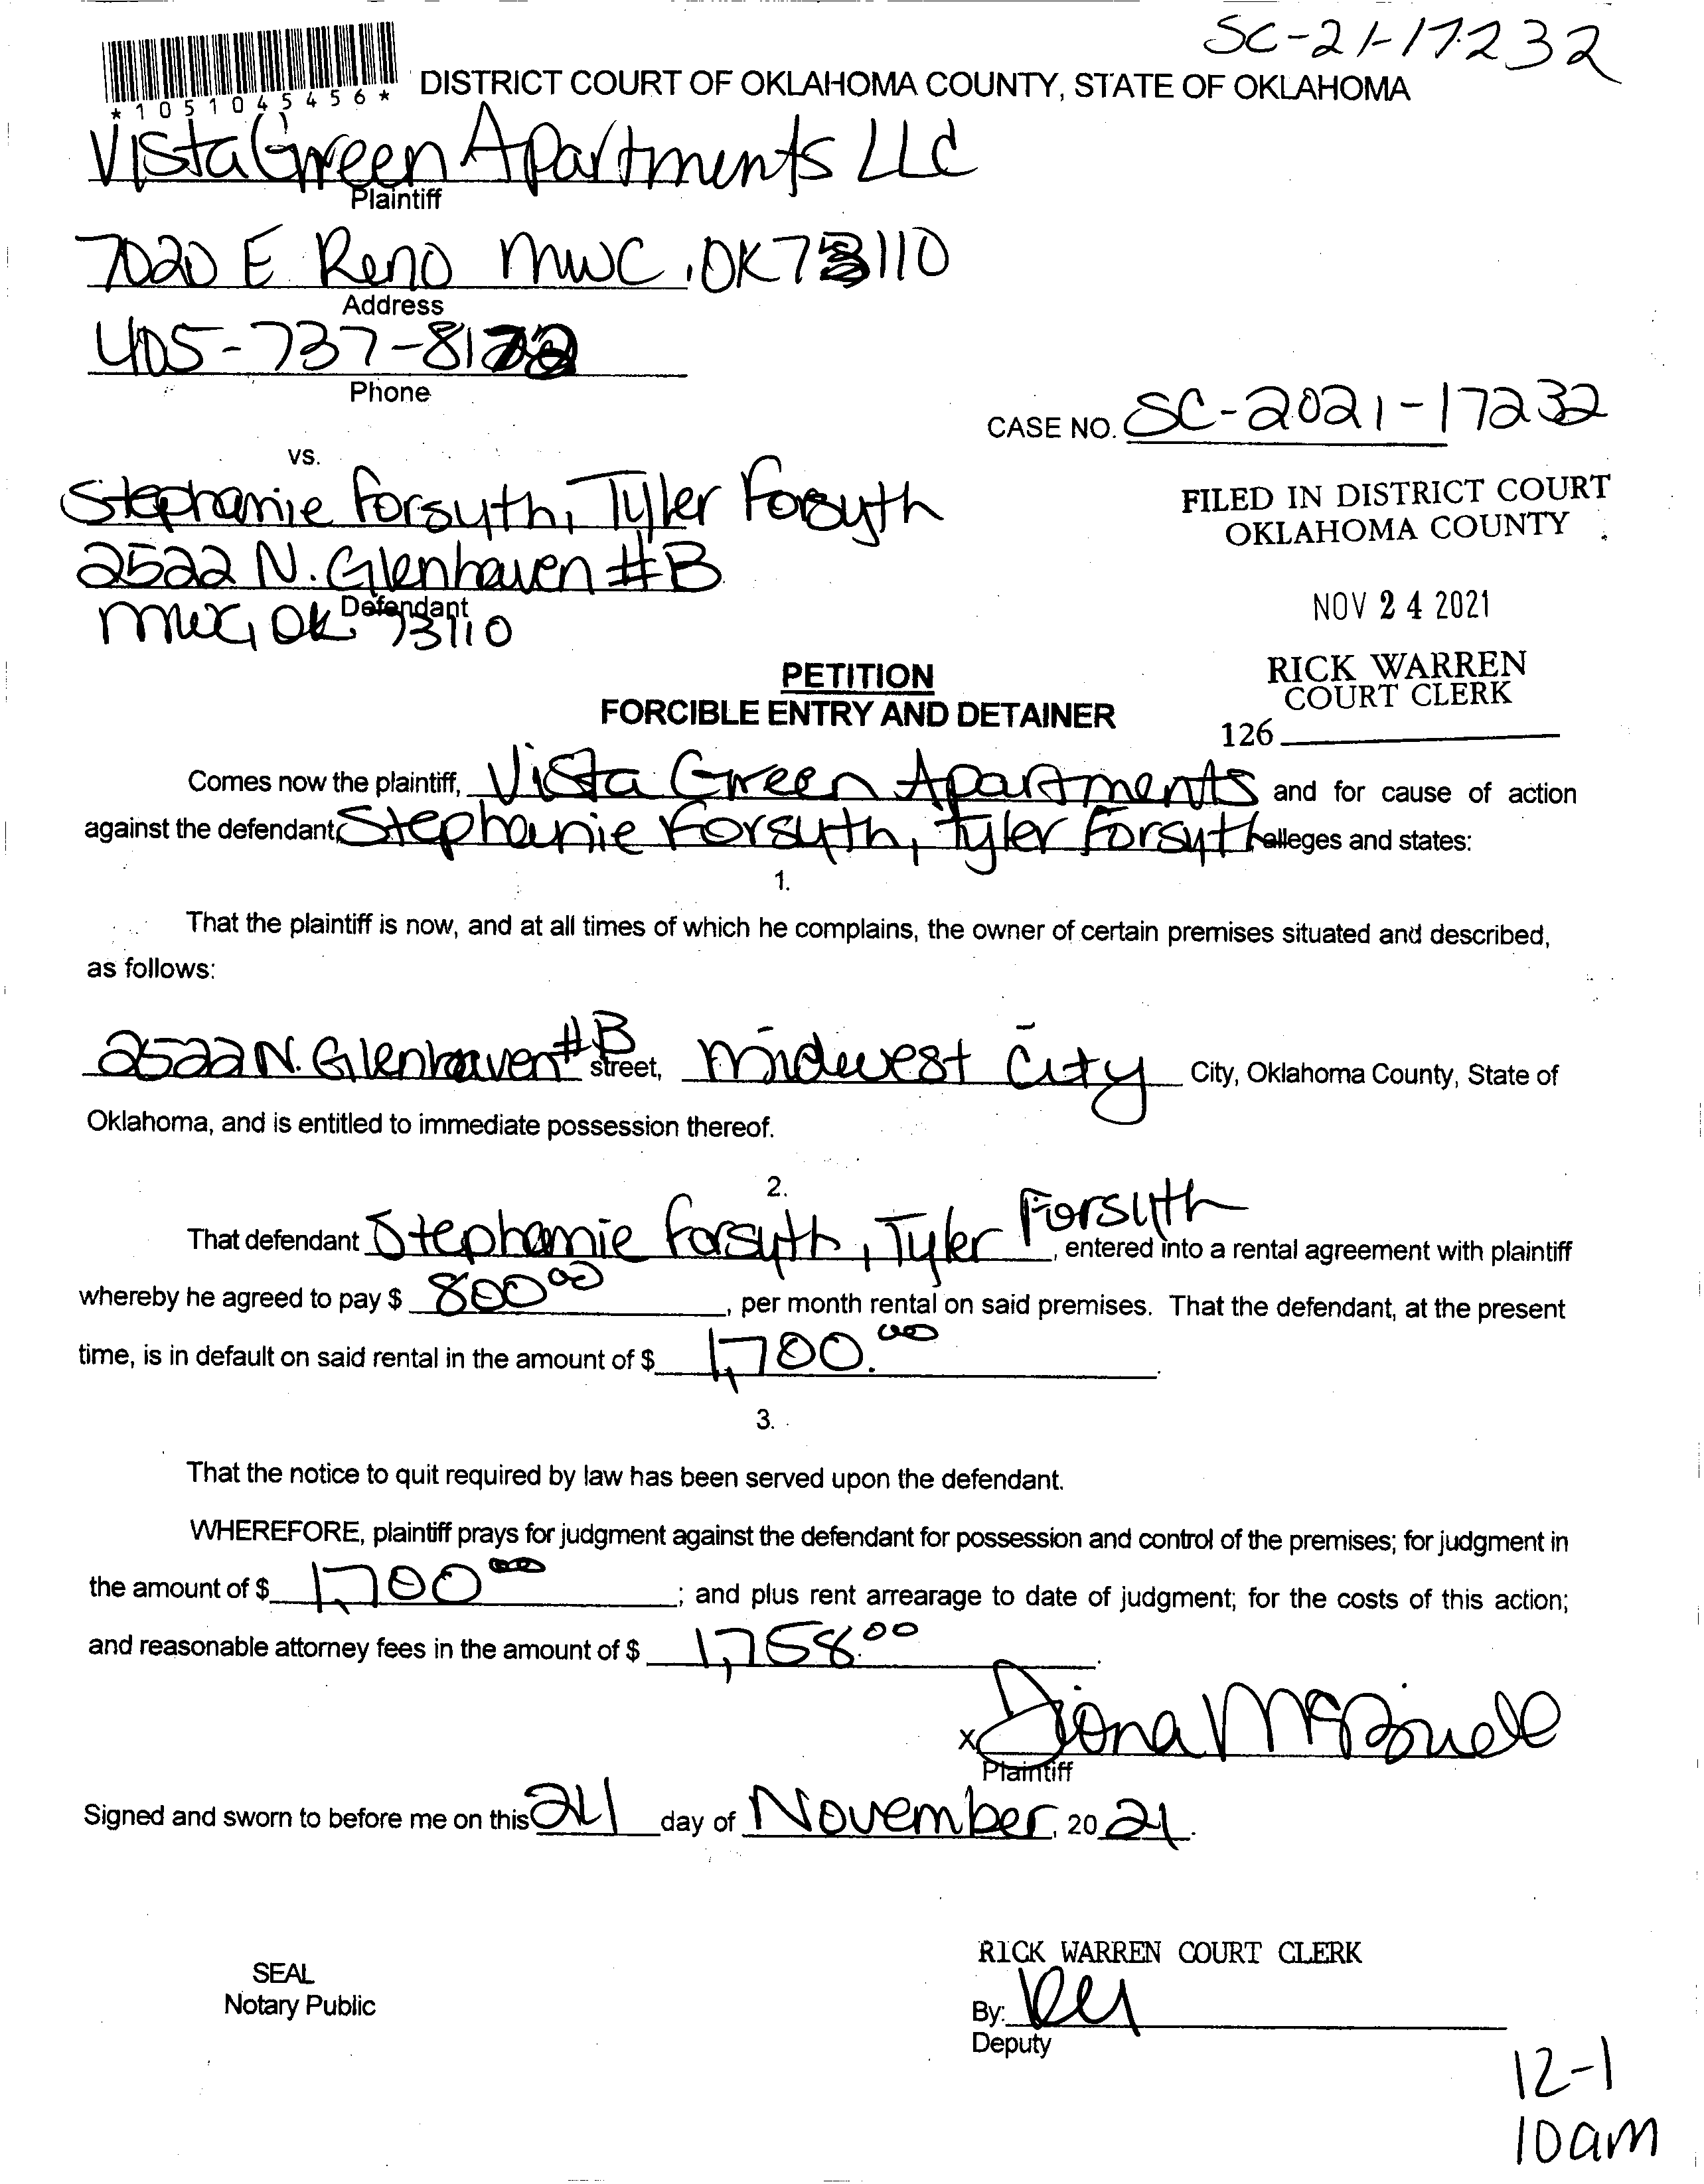 SC-21-17232
*1051045456*
DISTRICT COURT OF OKLAHOMA COUNTY, STATE OF OKLAHOMA
Vista Green Apartments LLC
Plaintiff
7020 E Reno MWC, OK 73110
Address
405-737-81
Phone
CASE NO. SC-2021-17232
vs.
Stephanie Forsyth, Tyler Forsyth
2522 N. Glenhaven #B
Defendant
MWC, OK 73110
FILED IN DISTRICT COURT
OKLAHOMA COUNTY
NOV 24 2021
RICK WARREN
COURT CLERK
126
PETITION
FORCIBLE ENTRY AND DETAINER
Comes now the plaintiff, Vista Green Apartments and for cause of action
against the defendant, Stephanie Forsyth, Tyler Forsyth alleges and states:
1.
That the plaintiff is now, and at all times of which he complains, the owner of certain premises situated and described,
as follows:
2522 N. Glenhaven #B street, Midwest City City, Oklahoma County, State of
Oklahoma, and is entitled to immediate possession thereof.
2.
That defendant Stephanie Forsyth, Tyler Forsyth, entered into a rental agreement with plaintiff
whereby he agreed to pay $ 800.00, per month rental on said premises. That the defendant, at the present
time, is in default on said rental in the amount of $ 1,700.00.
3.
That the notice to quit required by law has been served upon the defendant.
WHEREFORE, plaintiff prays for judgment against the defendant for possession and control of the premises; for judgment in
the amount of $ 1,700.00; and plus rent arrearage to date of judgment; for the costs of this action;
and reasonable attorney fees in the amount of $ 1,758.00.
X Diona
Plaintiff
Signed and sworn to before me on this 24 day of November, 2021.
SEAL
Notary Public
RICK WARREN COURT CLERK
By:
Deputy
12-1
10am